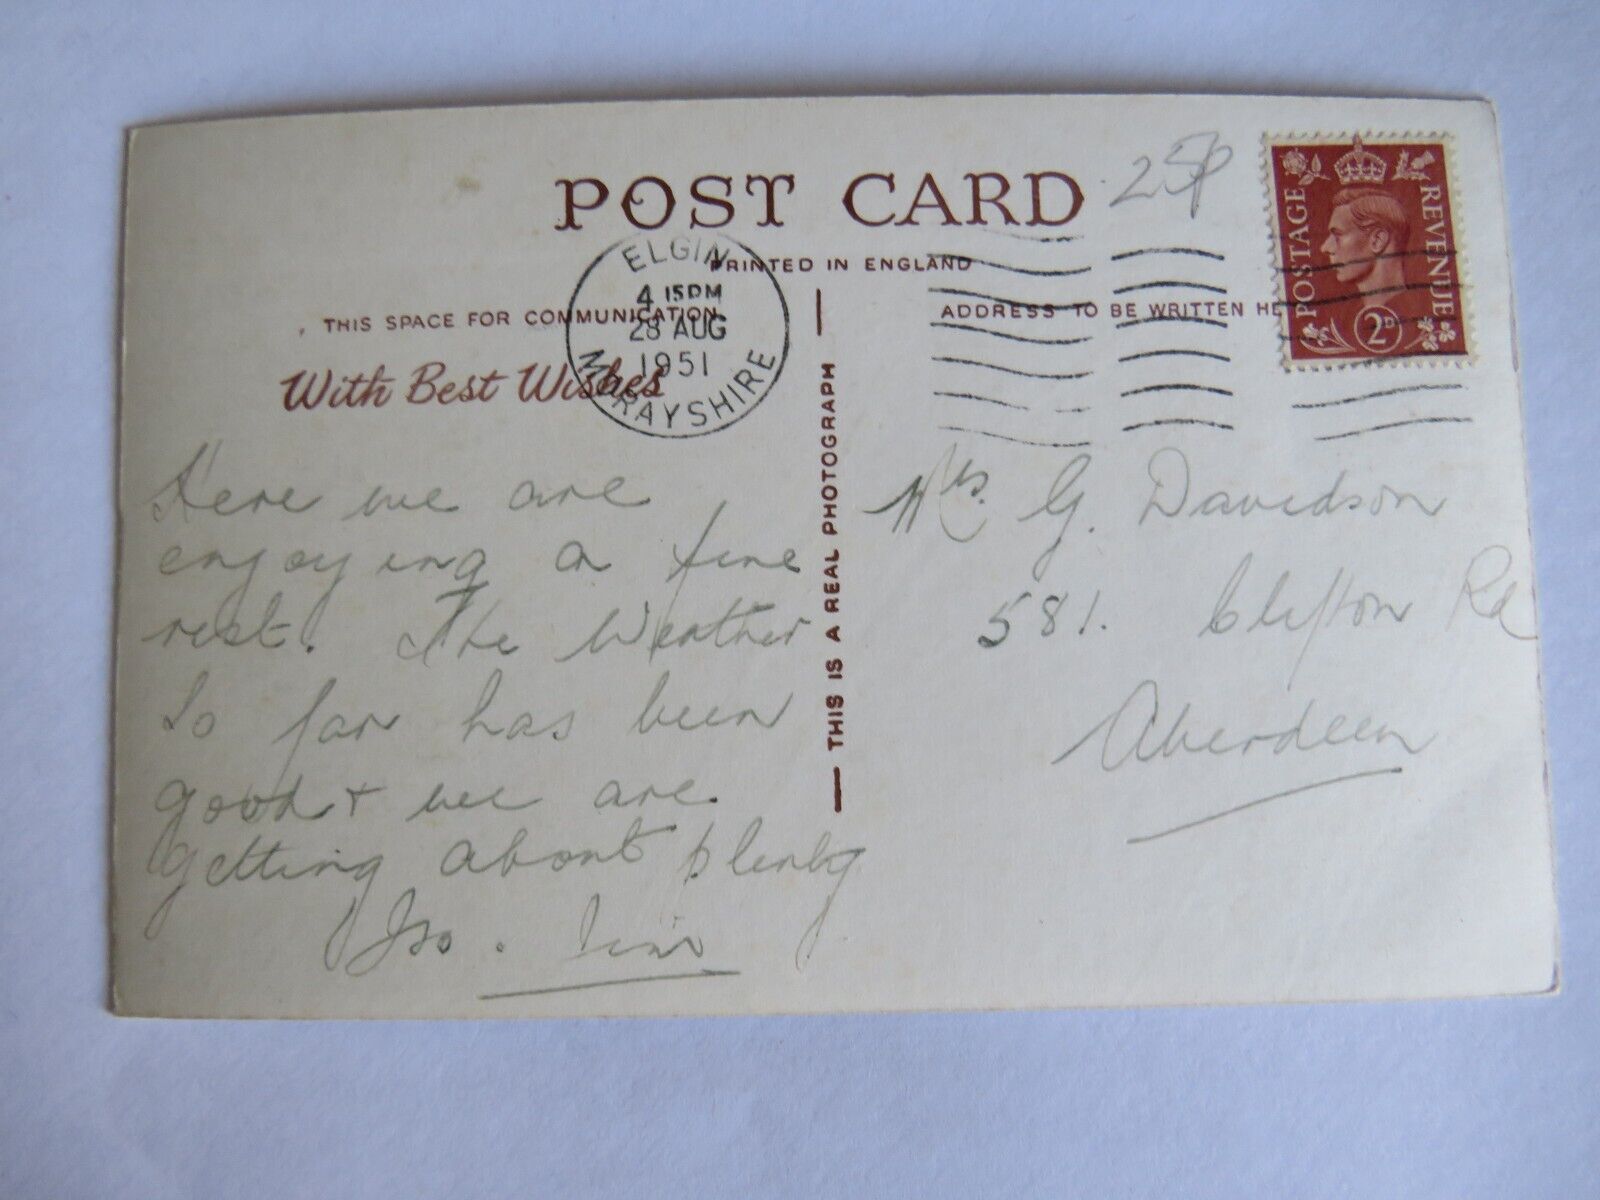 POST CARD
25p
PRINTED IN ENGLAND
THIS SPACE FOR COMMUNICATION
ADDRESS TO BE WRITTEN HE
With Best Wishes
ELGIN
4 15PM
28 AUG
1951
MORAYSHIRE
POSTAGE
REVENUE
2D
THIS IS A REAL PHOTOGRAPH
Here we are
enjoying a fine
rest. The Weather
So far has been
good + we are
getting about plenty
Mrs. G. Davidson
581. Clifton Rd
Aberdeen